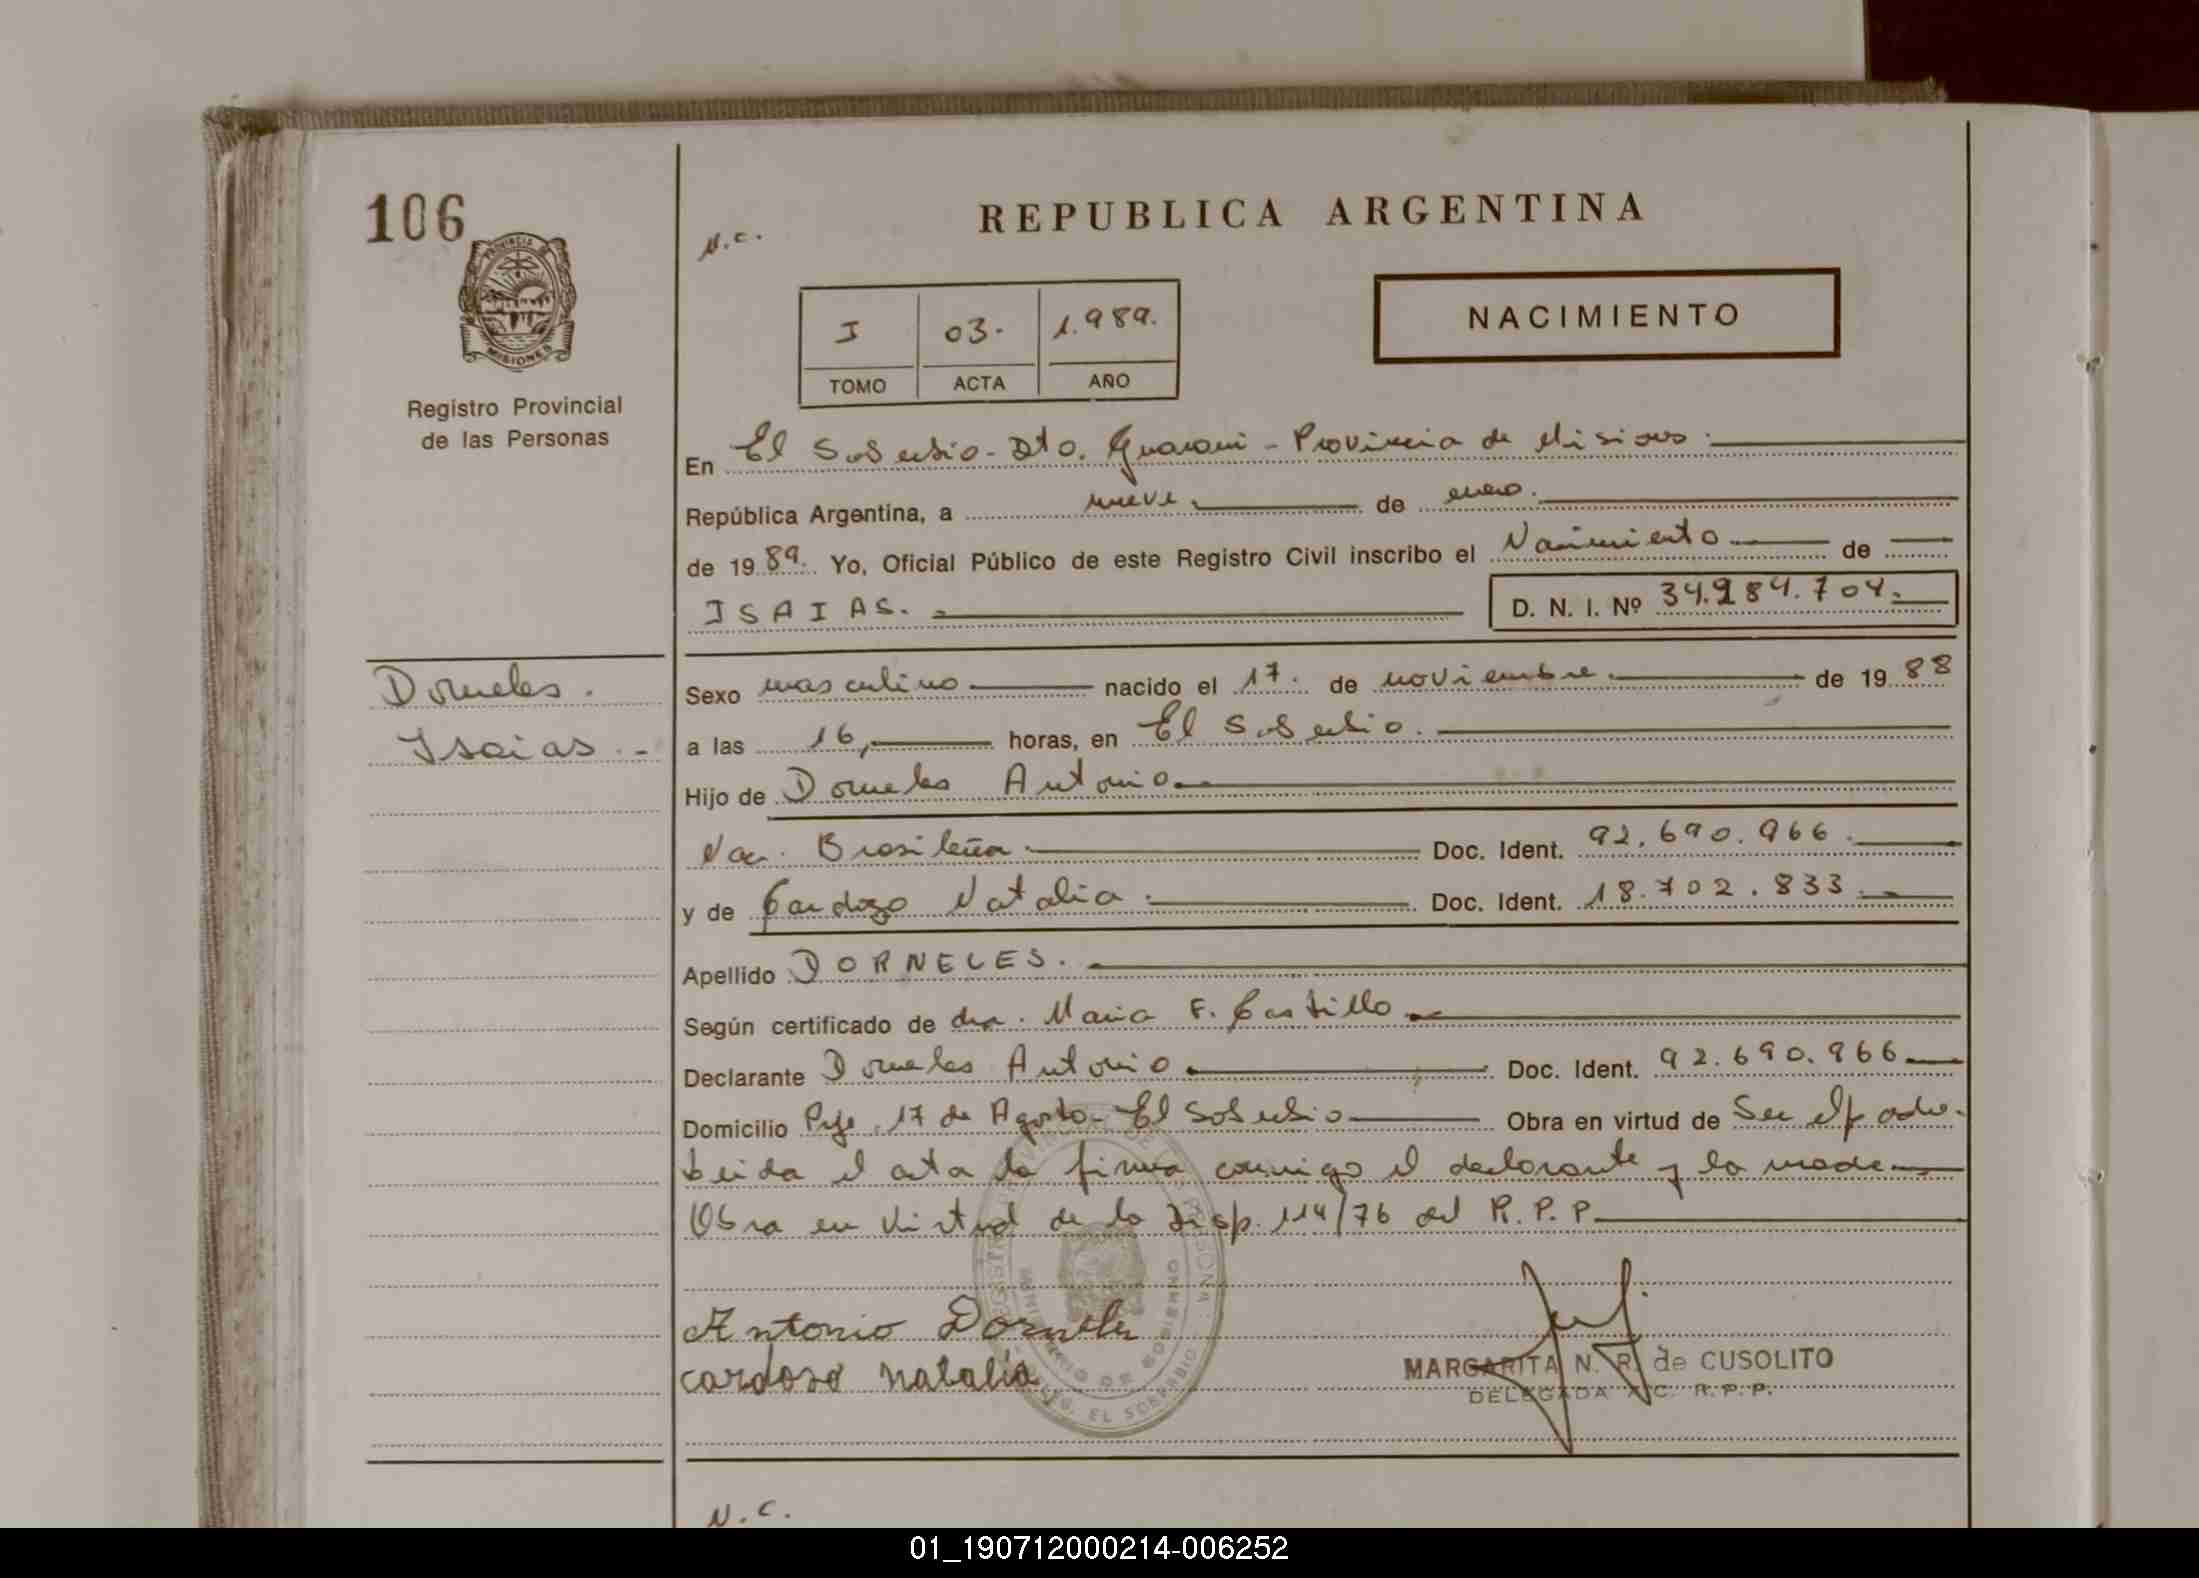 106
PROVINCIA DE
MISIONES
Registro Provincial
de las Personas
N.C.
REPUBLICA ARGENTINA
I 03. 1.989.
TOMO ACTA AÑO
NACIMIENTO
En El Soberbio - Dto. Guarani - Provincia de Misiones.
República Argentina, a nueve de enero.
de 1989. Yo, Oficial Público de este Registro Civil inscribo el Nacimiento de
ISAIAS. D. N. I. Nº 34.984.704.
Dorneles.
Isaias.-
Sexo masculino nacido el 17. de noviembre de 1988
a las 16, horas, en El Soberbio.
Hijo de Dorneles Antonio
Nac. Brasileña. Doc. Ident. 92.690.966.
y de Cardozo Natalia. Doc. Ident. 18.702.833.
Apellido DORNELES.
Según certificado de dra. Maria F. Castillo
Declarante Dorneles Antonio Doc. Ident. 92.690.966
Domicilio Pje. 17 de Agosto - El Soberbio Obra en virtud de Ser el padre.
Leida el acta la firma conmigo el declarante y la madre
Obra en virtud de la Disp. 114/76 del R.P.P.
Antonio Dorneles
cardoso natalia
MINISTERIO DE GOBIERNO
EL SOBERBIO
MARGARITA N. R. de CUSOLITO
DELEGADA A/C. R.P.P.
N.C.
01_190712000214-006252